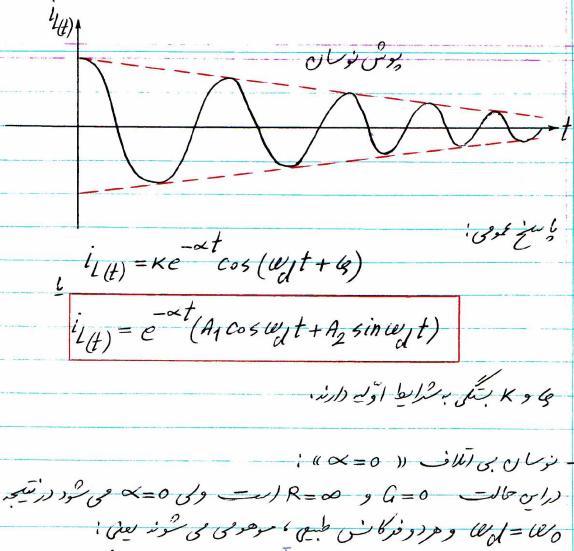 i_L(t)
پوش نوسان
t
پاسخ عمومی:
i_L(t) = Ke^{-αt} cos(ω_d t + φ)
یا
i_L(t) = e^{-αt}(A_1 cos ω_d t + A_2 sin ω_d t)
φ و K بستگی به شرایط اوّلیه دارند.
- نوسان بی اتلاف «α=0»:
در این حالت G=0 و R=∞ است ولی α=0 می شود در نتیجه
ω_d = ω_0 و هر دو فرکانس طبیعی، موهومی می شوند یعنی: